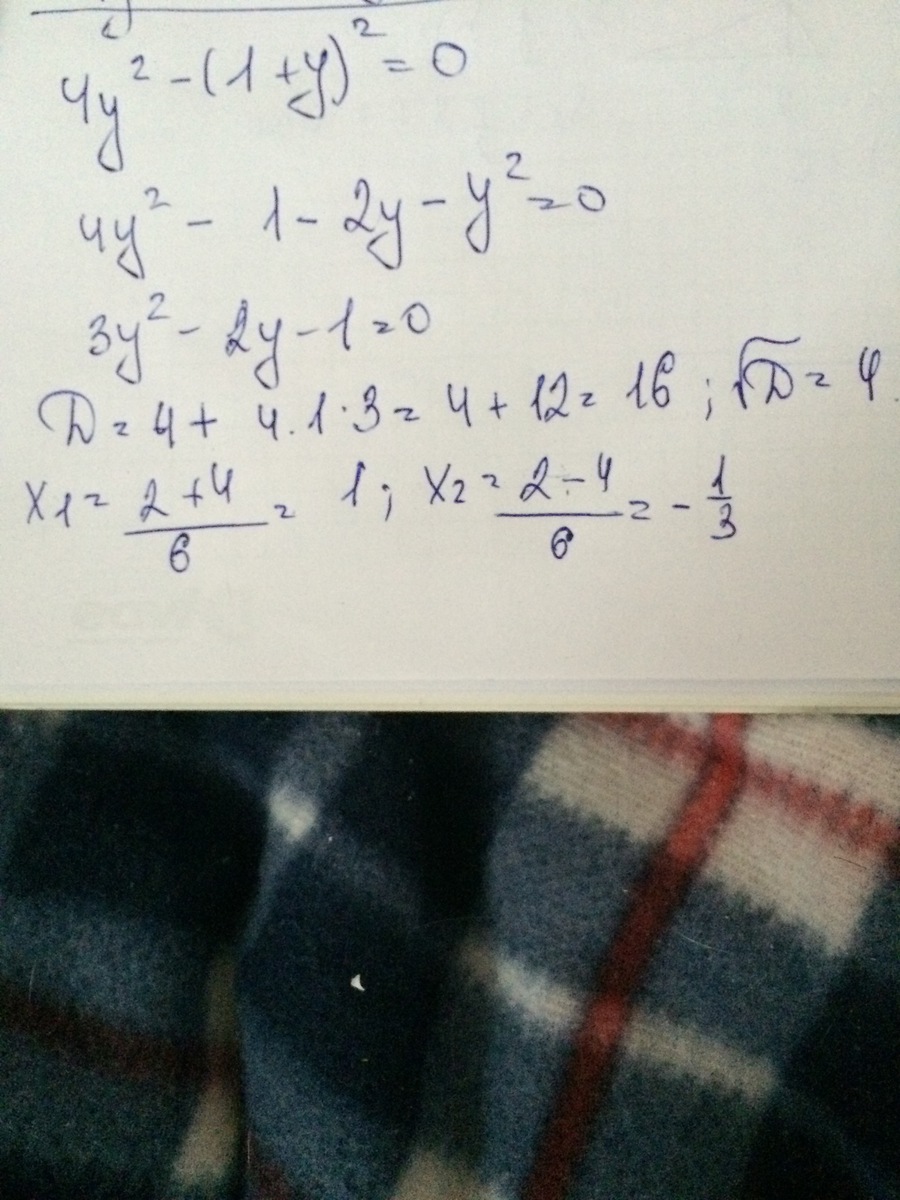 4y² - (1 + y)² = 0
4y² - 1 - 2y - y² = 0
3y² - 2y - 1 = 0
D = 4 + 4 · 1 · 3 = 4 + 12 = 16 ; √D = 4
x1 = (2 + 4)/6 = 1 ; x2 = (2 - 4)/6 = - 1/3